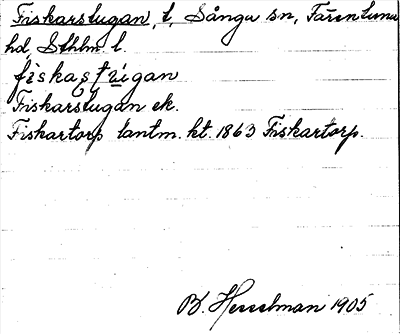 Fiskarstugan, t, Sånga sn, Färentuna
hd, Sthlm. l.
fiskastugan
Fiskarstugan ek.
Fiskartorp lantm. kt. 1863 Fiskartorp.
B. Hesselman 1905